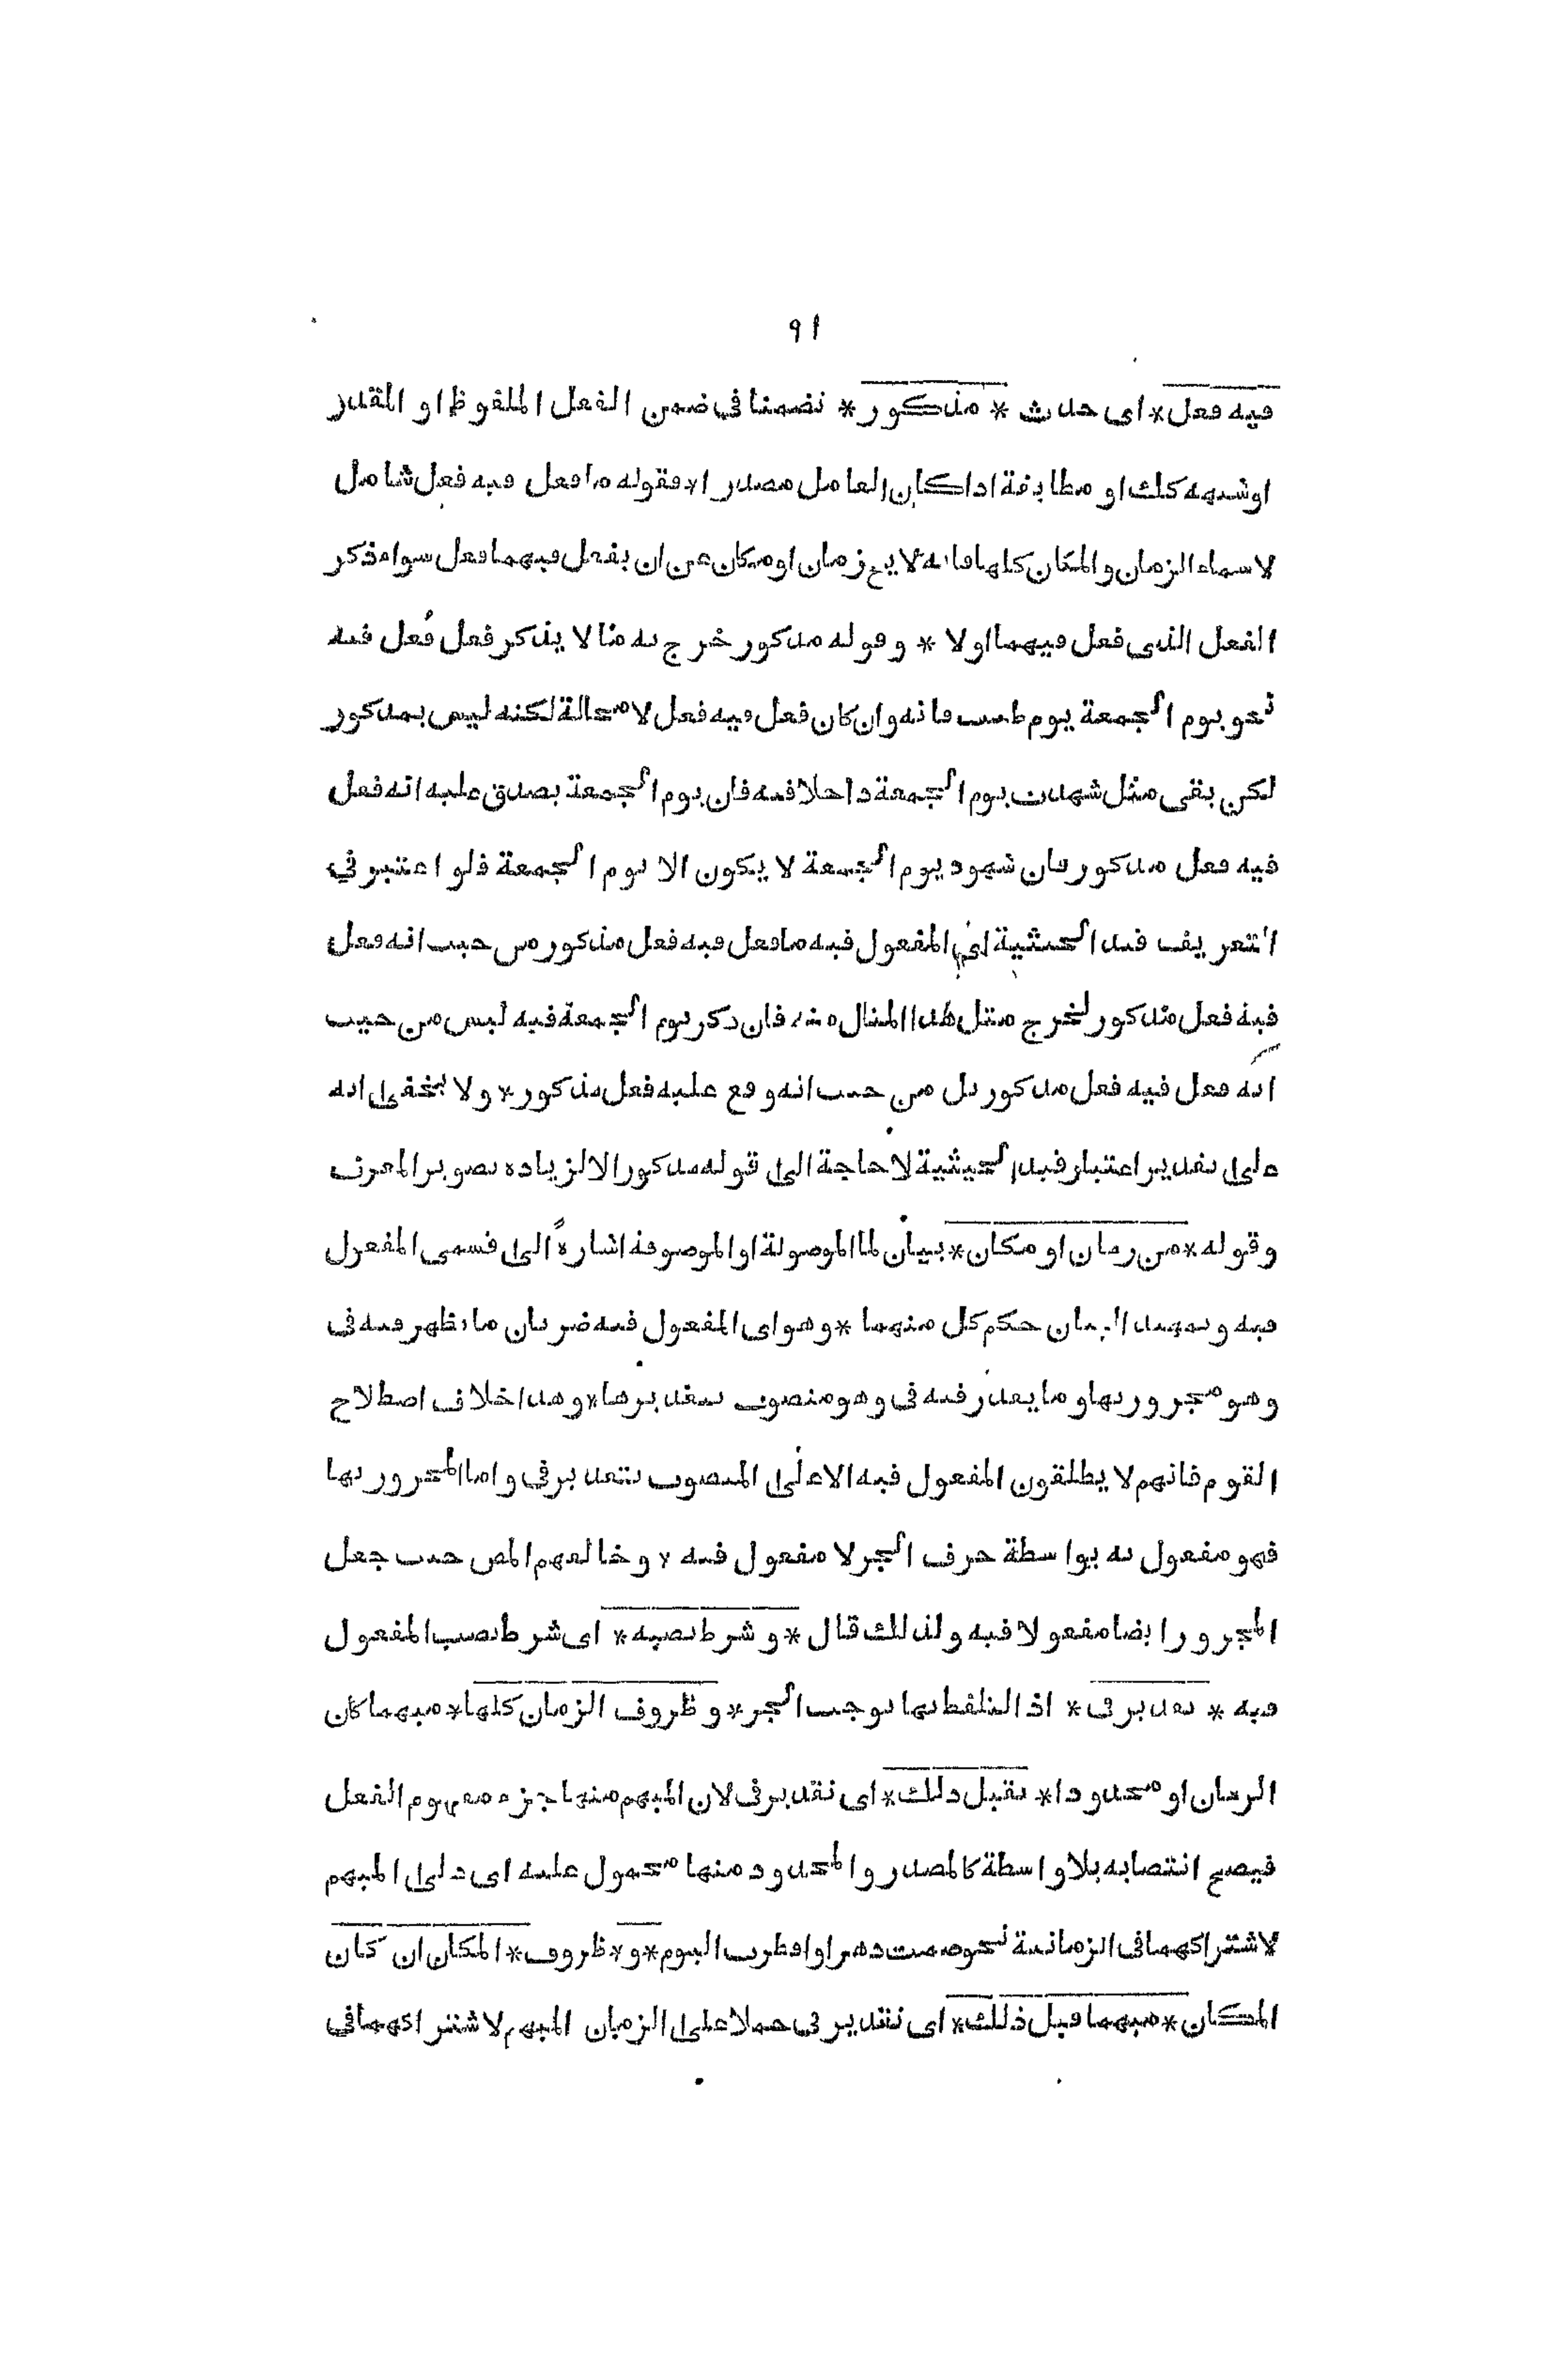 ٩١
فيه فعل * اى حدث * مذكور * تضمنا فى ضمن الفعل الملفوظ او المقدر
او شبهه كذلك او مطابقة اذا كان العامل مصدرا فقوله ما فعل فيه فعل شامل
لاسماء الزمان والمكان كلها فانه لا يخ زمان او مكان عن ان يفعل فيهما فعل سواء ذكر
الفعل الذى فعل فيهما اولا * وقوله مذكور خرج به منا لا يذكر فعل فُعل فيه
نحو يوم الجمعة يوم طيب فانه وان كان فعل فيه فعل لا محالة لكنه ليس بمذكور
لكن بقى مثل شهدت يوم الجمعة داخلا فيه فان يوم الجمعة يصدق عليه انه فعل
فيه فعل مذكور فان شهود يوم الجمعة لا يكون الا يوم الجمعة فلو اعتبر فى
التعريف قيد الحيثية اى المفعول فيه ما فعل فيه فعل مذكور من حيث انه فعل
فيه فعل مذكور لخرج مثل هذا المثال منه فان ذكر يوم الجمعة فيه ليس من حيث
انه فعل فيه فعل مذكور بل من حيث انه وقع عليه فعل مذكور * ولا يخفى انه
على تقدير اعتبار قيد الحيثية لا حاجة الى قوله مذكور الا لزيادة تصوير المعرف
وقوله * من زمان او مكان * بيان لما الموصولة او الموصوفة اشارةً الى قسمى المفعول
فيه وتمهيد لبيان حكم كل منهما * وهو اى المفعول فيه ضربان ما يظهر فيه فى
وهو مجرور بها وما يقدر فيه فى وهو منصوب بتقديرها * وهذا خلاف اصطلاح
القوم فانهم لا يطلقون المفعول فيه الا على المنصوب بتقدير فى واما المجرور بها
فهو مفعول به بواسطة حرف الجر لا مفعول فيه * وخالفهم المص حيث جعل
المجرور ايضا مفعولا فيه ولذلك قال * وشرط نصبه * اى شرط نصب المفعول
فيه * تقدير فى * اذ التلفظ بها يوجب الجر * وظروف الزمان كلها * مبهما كان
الزمان او محدودا * تقبل ذلك * اى تقدير فى لان المبهم منها جزء مفهوم الفعل
فيصح انتصابه بلا واسطة كالمصدر والمحدود منها محمول عليه اى على المبهم
لاشتراكهما فى الزمانية نحو صمت دهرا وافطرت اليوم * و * ظروف * المكان ان كان
المكان * مبهما قبل ذلك * اى تقدير فى حملا على الزمان المبهم لاشتراكهما فى